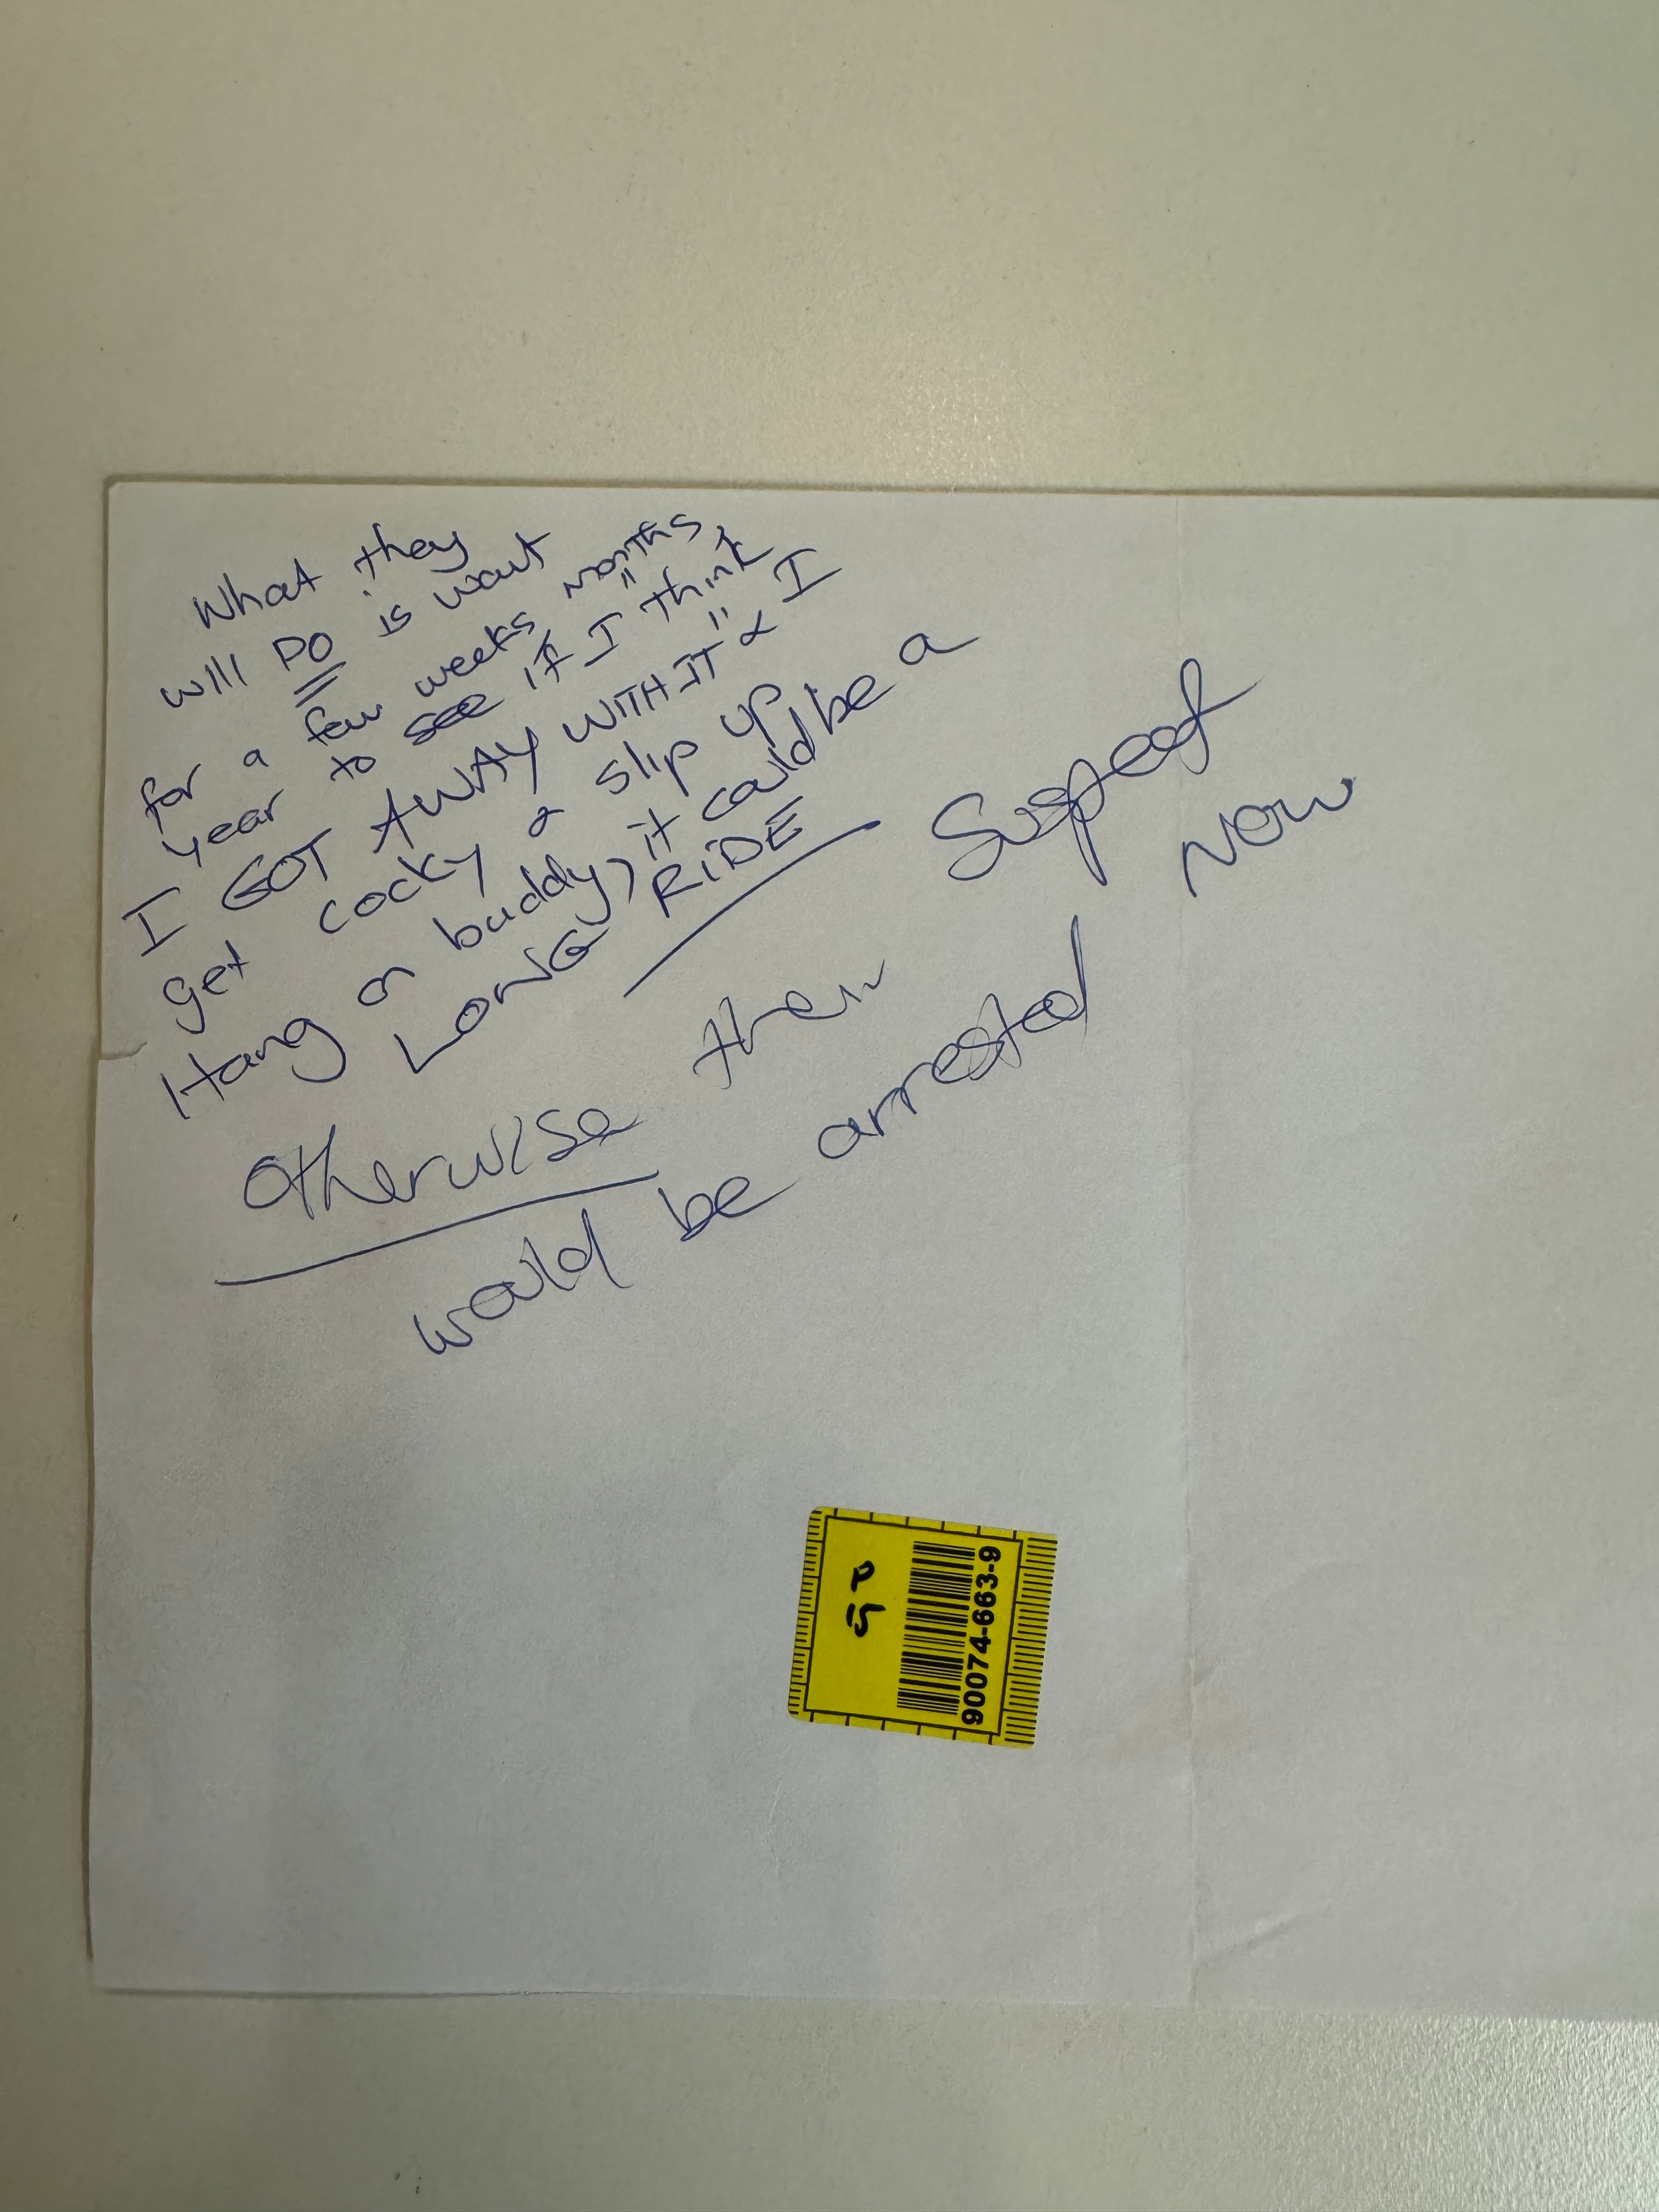 What they
will DO is wait
for a few weeks, months,
year to see if I think
I GOT AWAY WITH IT & I
get cocky & slip up
Hang on buddy, it could be a
LONG RIDE
Otherwise then Suspect
would be arrested now
90074-663-9